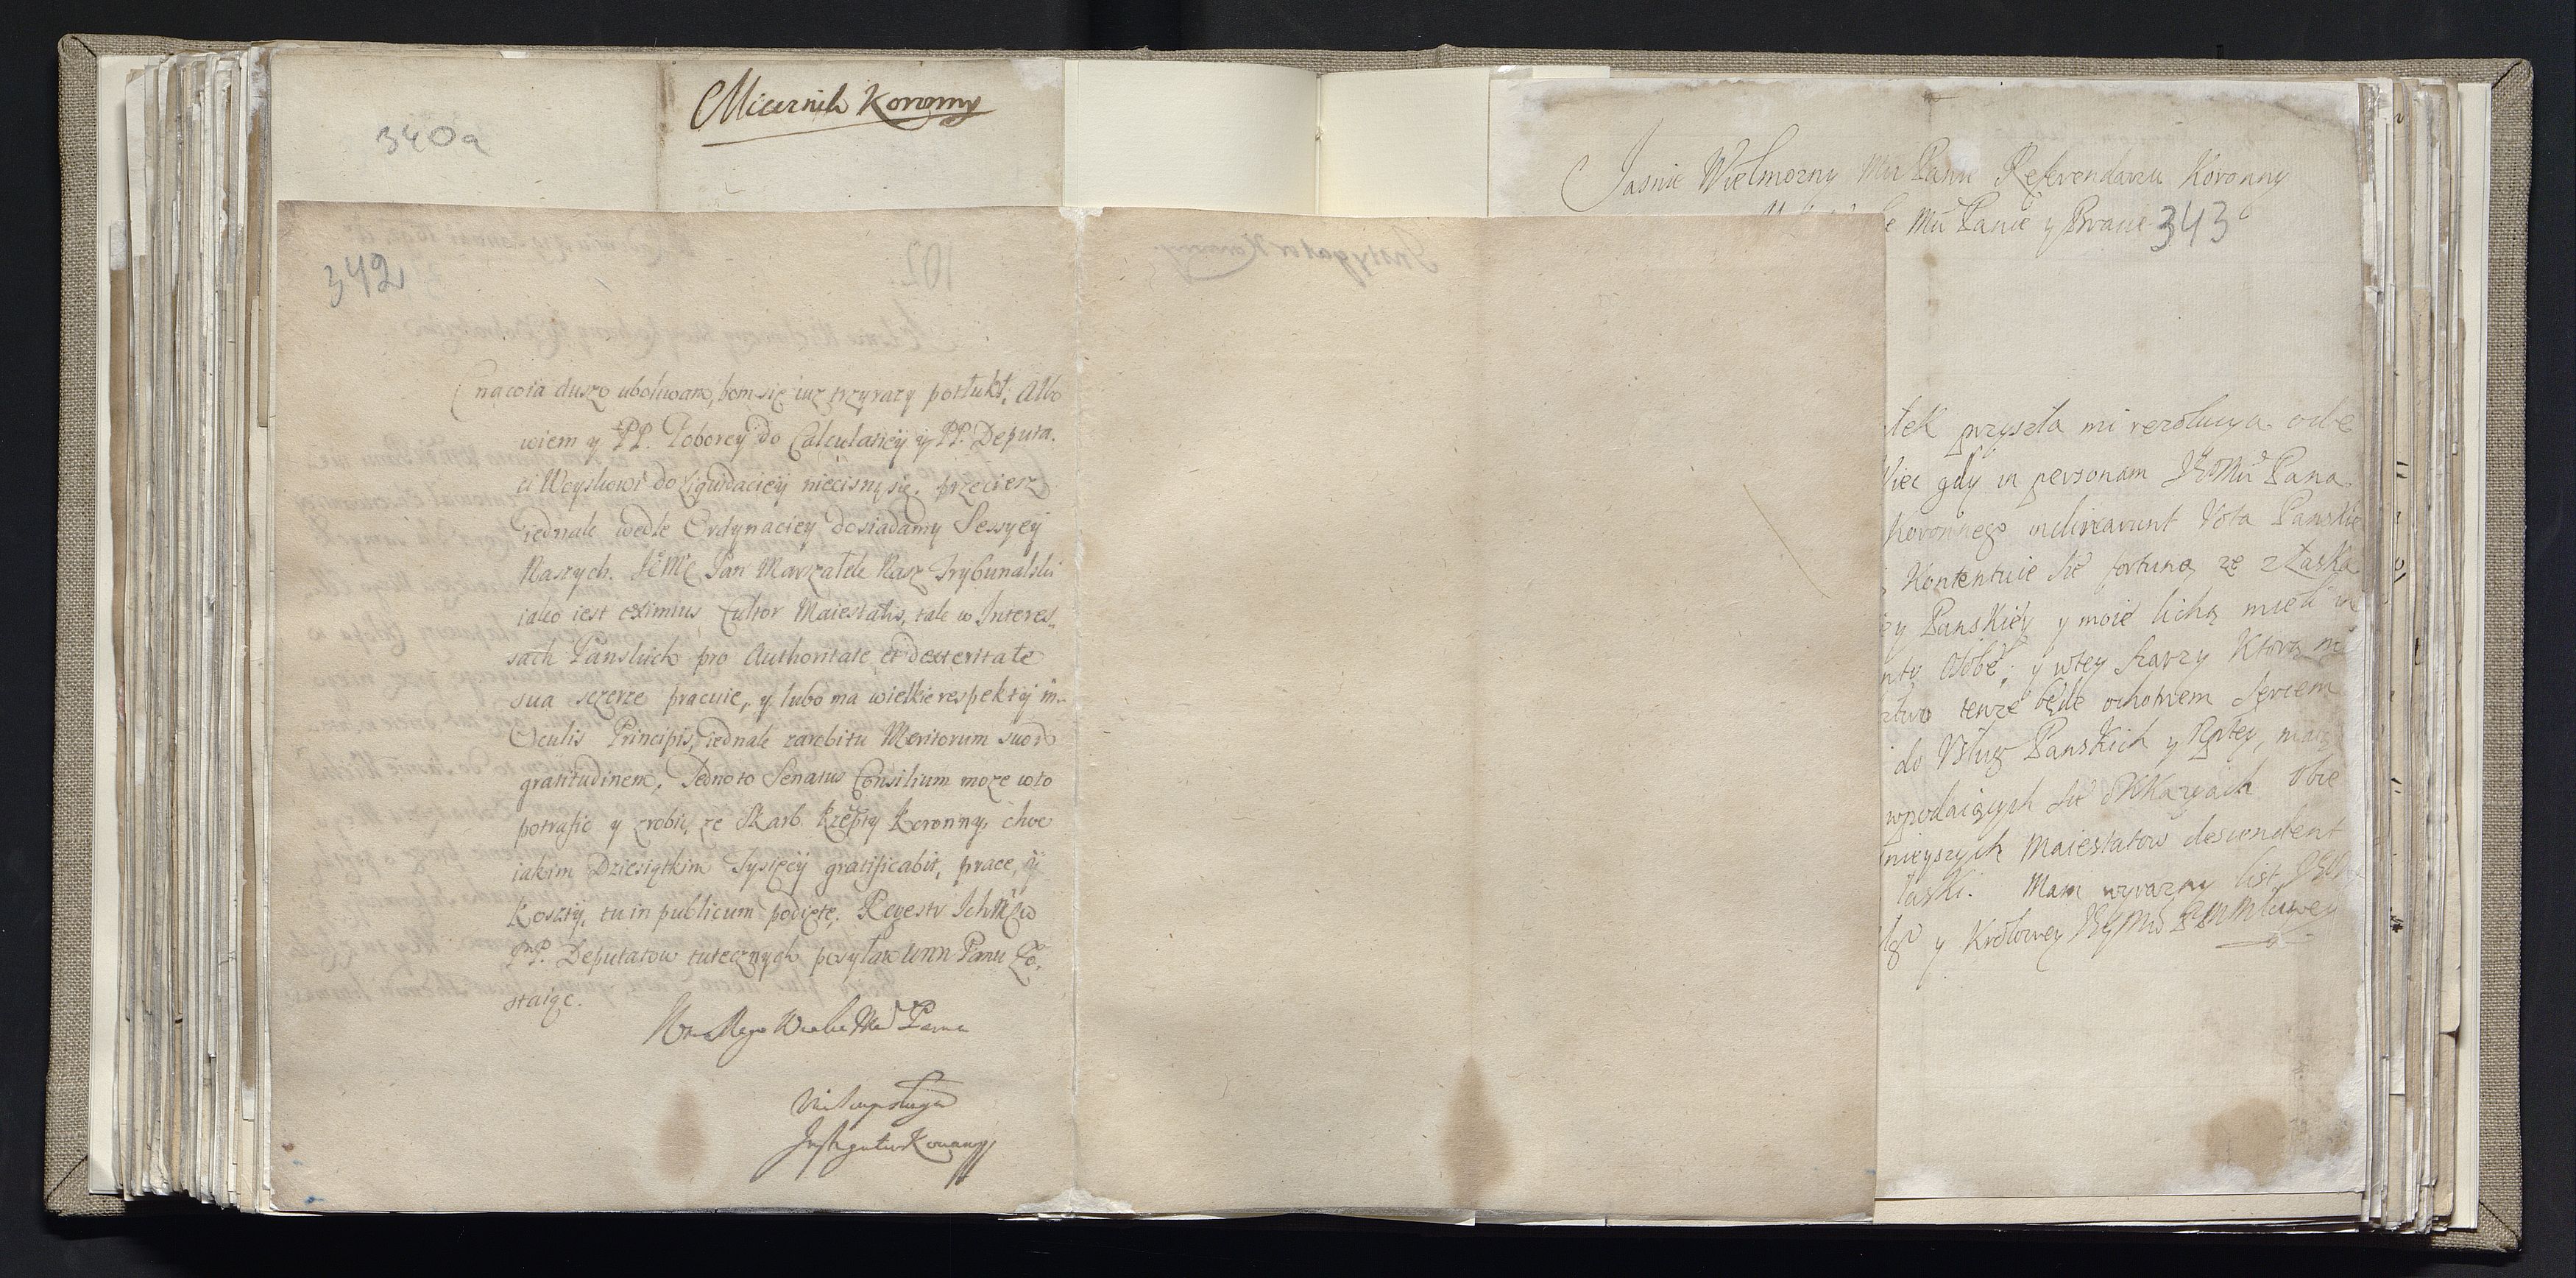 340a
Miecznik Koronny
342
nacoia duszo uboliwam, bom się iuz trzyrazy potłukł, Albo
wiem y PP. Poborcy do Calculaticÿ y PP. Deputa.
ci Woyskowi do Liquidacieÿ niecisnąsię. przeciesz
iednak wedle Ordynaciey dosiadamy Sessyeÿ
Naszych. JeMć Pan Marszałek Nasz Trybunalski
iako iest eximius Cultor Maiestatis, tak w Interes-
sach Panskich pro Authoritate et dexteritate
sua szczerze pracuie, y lubo ma wielkie respektÿ in
Oculis Principis, iednak zarobitu Meritorum suoro
gratitudinem. Jedno to Senatus Consilium moze wto
potrafic y zrobic, ze Skarb Rzeptÿ Koronny, choc
iakim Dziesiątkim Tysięcÿ gratificabit, prace, ÿ
Kosztÿ, tu in publicum podięte. Regestr IchMćw
PP. Deputatow tutecznych posyłam WMM Panu Zo-
staiąc.
Wm Mego Wielce Mći Pana
sługa
Instigator Koronny
Jasnie Wielmozny Mći Panie Referendarzu Koronny
e Mći Panie y Bracie
343
tek przyszła mi rezolucya odbe
Wiec gdy in personam JKMći Pana
Koronnego inclinarunt Vota Panskie
Kontentuie sie fortuną, ze z Łaska
ey Panskiey y moie lichą mieli in
nto Osobe, y wtey szarzy Ktorą
tenze będe ochotnem sercem
do Usług Panskich y Rptey, maiąc
wpodaiących sie Okkazyach Obie
nieyszych Maiestatow descendent
łaski. Mam wyrazny list
y Krolowey